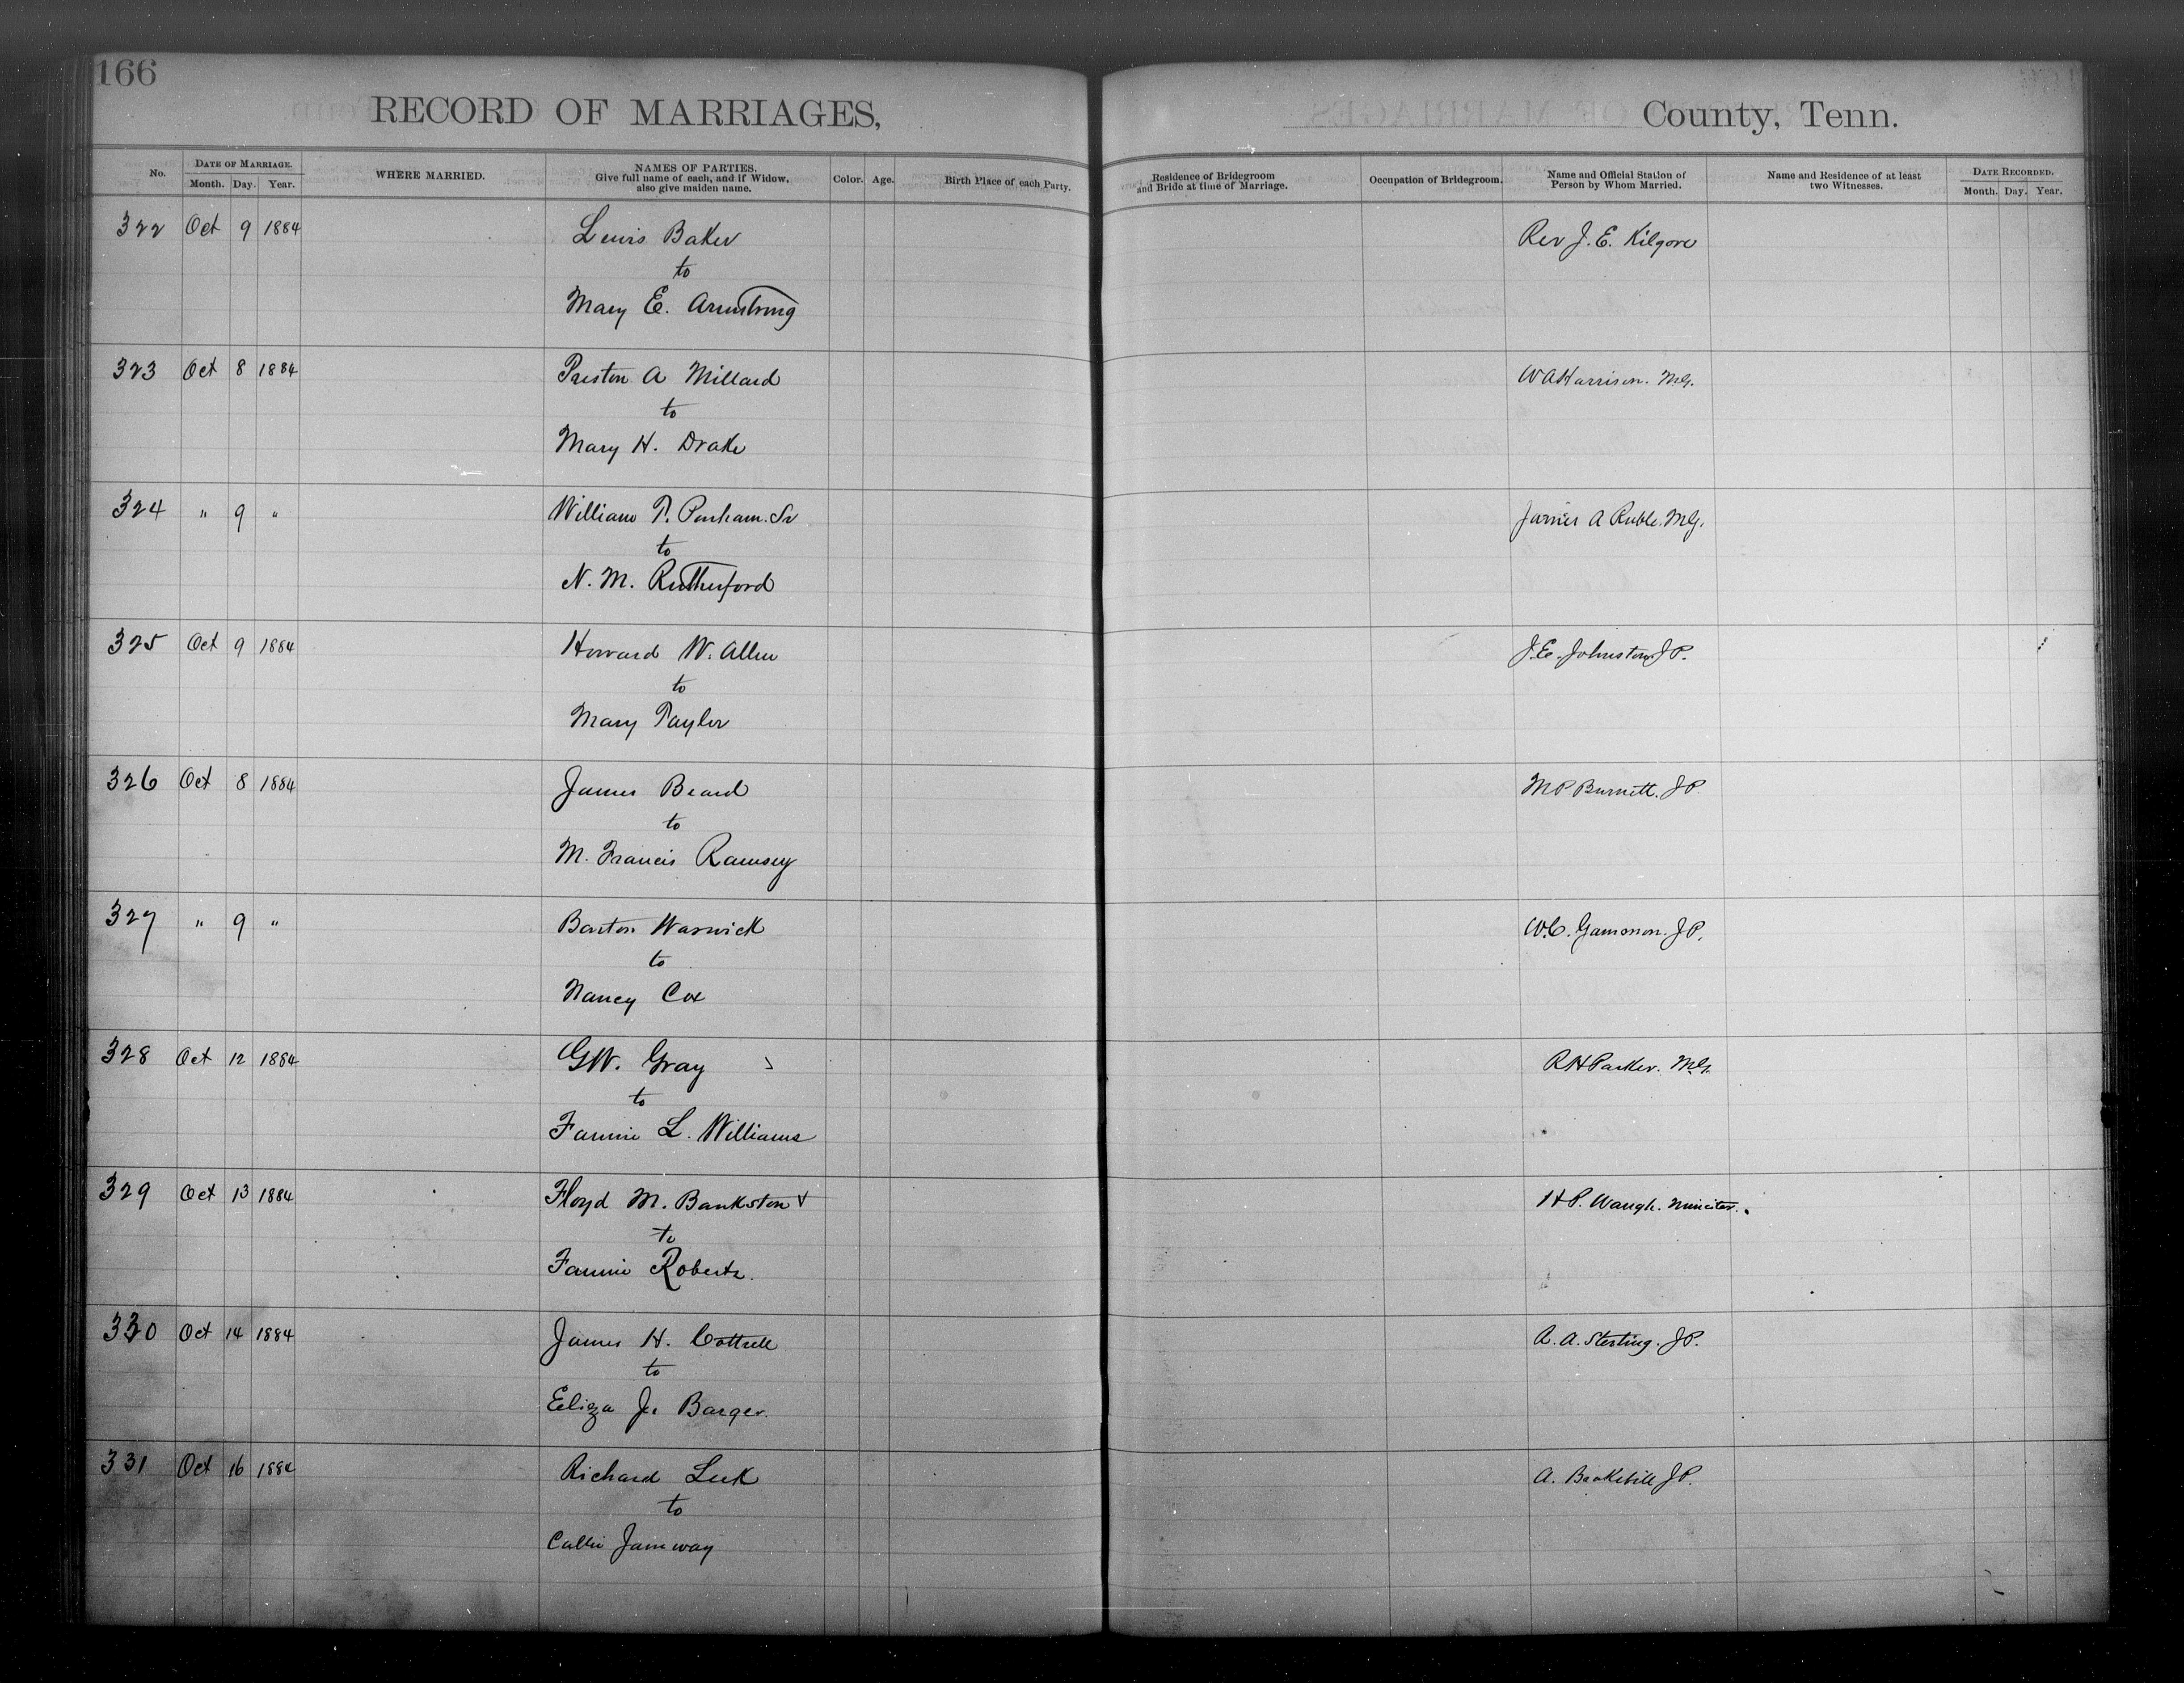 166
RECORD OF MARRIAGES, County, Tenn.
No. DATE OF MARRIAGE. Month. Day. Year. WHERE MARRIED. NAMES OF PARTIES. Give full name of each, and if Widow, also give maiden name. Color. Age. Birth Place of each Party. Residence of Bridegroom and Bride at time of Marriage. Occupation of Bridegroom. Name and Official Station of Person by Whom Married. Name and Residence of at least two Witnesses. DATE RECORDED. Month. Day. Year.
322 Oct 9 1884 Lewis Baker Rev J. E. Kilgore
to
Mary E. Armstrong
323 Oct 8 1884 Preston A Millard W A Harrison. M.G.
to
Mary H. Drake
324 " 9 " William P. Sr James A Ruble. M.G.
to
N. M. Rutherford
325 Oct 9 1884 Howard W. Allen J. E. Johnston J P.
to
Mary Taylor
326 Oct 8 1884 James Beard M P Burnett. J P.
to
M. Francis Ramsey
327 " 9 " Warwick W. C. Gammon. J P.
to
Nancy Cox
328 Oct 12 1884 G W. Gray R H Parker. M.G.
to
Fannie L. Williams
329 Oct 13 1884 Floyd M. Bankston H P. Waugh. Minister.
to
Fannie Roberts.
330 Oct 14 1884 James H. Cottrell A. A. Sterling. J P.
to
Eliza J. Barger.
331 Oct 16 1884 Richard A. J P.
to
Callie